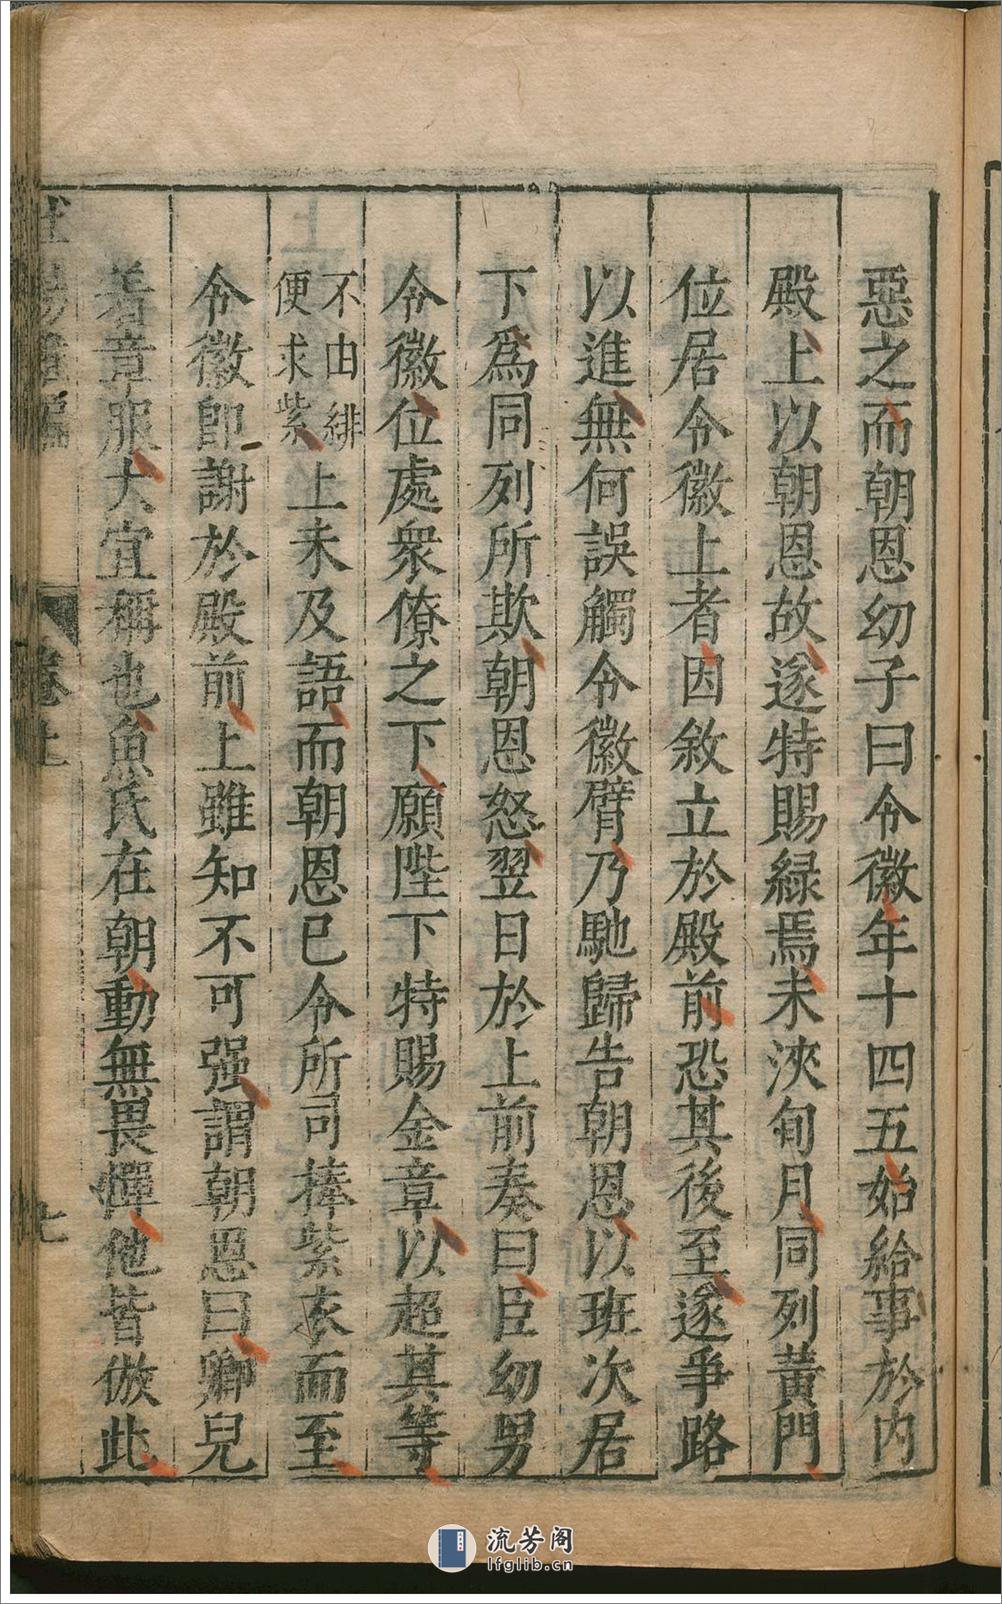 惡之而朝恩幼子曰令徽年十四五始給事於内
殿上以朝恩故遂特賜緑焉未浹旬月同列黃門
位居令徽上者因敘立於殿前恐其後至遂爭路
以進無何誤觸令徽臂乃馳歸告朝恩以班次居
下爲同列所欺朝恩怒翌日於上前奏曰臣幼男
令徽位處衆僚之下願陛下特賜金章以超其等
不由緋
便求紫
上未及語而朝恩已令所司捧紫衣而至
令徽即謝於殿前上雖知不可强謂朝恩曰卿兒
着章服大宜稱也魚氏在朝動無畏憚他皆倣此
流芳阁
lfglib.cn